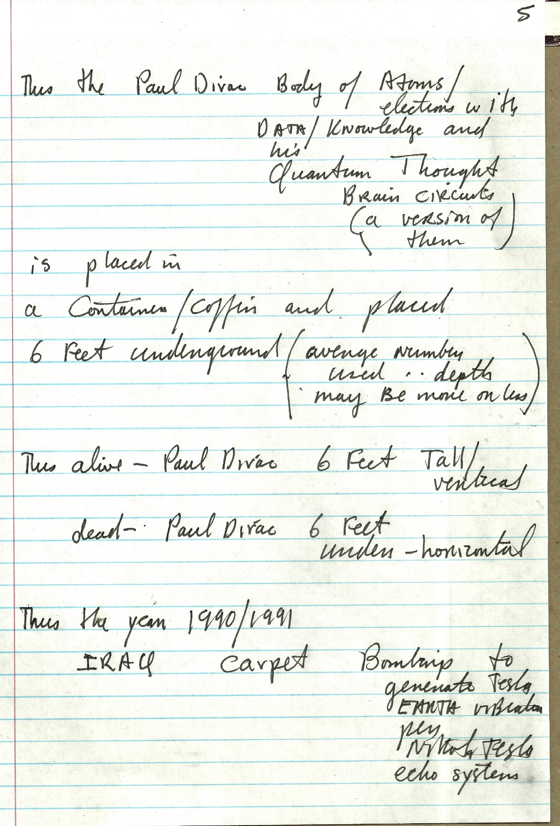 5
Thus the Paul Dirac Body of Atoms/
electrons with
DATA/Knowledge and
his
Quantum Thought
Brain circuits
(a version of
them)
is placed in
a Container/coffin and placed
6 Feet underground (average number
used .. depth
may Be more or less)
Thus alive - Paul Dirac 6 Feet Tall/
vertical
dead - Paul Dirac 6 Feet
under - horizontal
Thus the year 1990/1991
IRAQ carpet Bombings to
generate Tesla
EARTH vibration
per
Nikola Tesla
echo systems